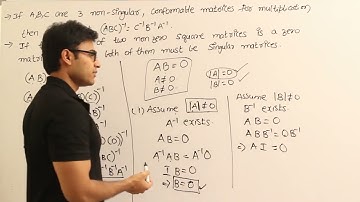 → If A,B,C are 3 non-singular, conformable matrices for multiplication
then (ABC)⁻¹ = C⁻¹B⁻¹A⁻¹.
→ If of two non zero square matrices is a zero
both of them must be singular matrices.
AB=0
A≠0
B≠0
|A|=0
|B|=0
(1) Assume |A|≠0
A⁻¹ exists.
AB=0
A⁻¹AB=A⁻¹0
IB=0
⇒ B=0
Assume |B|≠0
B⁻¹ exists
AB=0
ABB⁻¹=0B⁻¹
⇒ AI=0